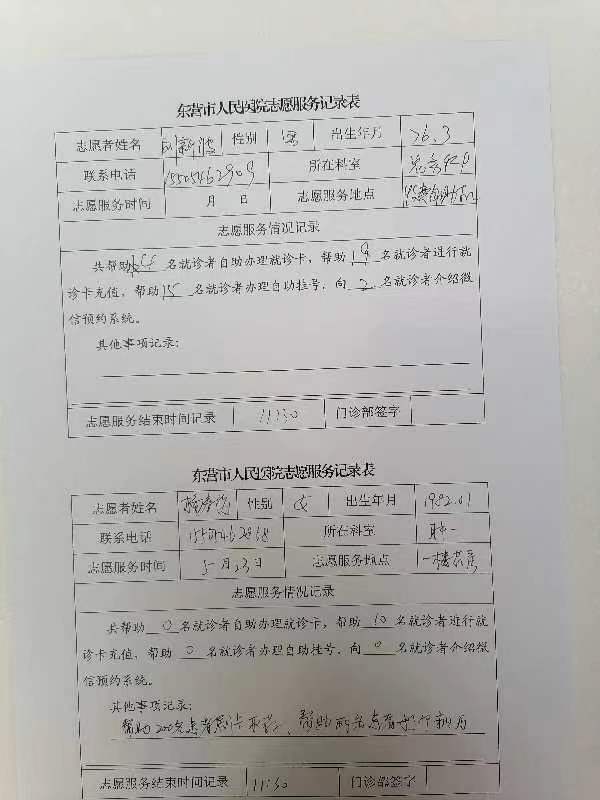 东营市人民医院志愿服务记录表
志愿者姓名 性别 出生年月 76.3
联系电话 15505462909 所在科室
志愿服务时间 月 日 志愿服务地点
志愿服务情况记录
共帮助 名就诊者自助办理就诊卡，帮助 18 名就诊者进行就
诊卡充值，帮助 15 名就诊者办理自助挂号，向 2 名就诊者介绍微
信预约系统。
其他事项记录：
志愿服务结束时间记录 11:30 门诊部签字
东营市人民医院志愿服务记录表
志愿者姓名 性别 女 出生年月 1982.01
联系电话 15505462868 所在科室
志愿服务时间 5月23日 志愿服务地点 一楼
志愿服务情况记录
共帮助 0 名就诊者自助办理就诊卡，帮助 10 名就诊者进行就
诊卡充值，帮助 0 名就诊者办理自助挂号，向 0 名就诊者介绍微
信预约系统。
其他事项记录：
帮助200名患者 帮助两名患者
志愿服务结束时间记录 11:30 门诊部签字